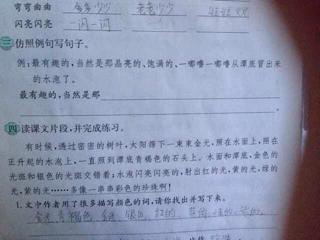 弯弯曲曲
闪亮闪亮 一闪一闪
三 仿照例句写句子。
例:最有趣的,当然是那晶亮的、饱满的、一嘟噜一嘟噜从潭底冒出来
的水泡了。
最有趣的,当然是那
四 读课文片段,并完成练习。
有时候,透过密密的树叶,太阳筛下一束束金光,照在水面上,照在
正升起的水泡上,一直照到潭底青褐色的石头上。水面和潭底,金色的
光斑和银色的光斑交错着;水泡闪亮闪亮的,射出红的光,黄的光,绿的
光,黄的光……多像一串串彩色的珍珠啊!
1.文中作者用了很多描写颜色的词,请你找出并写下来。
青褐色 银色 红的